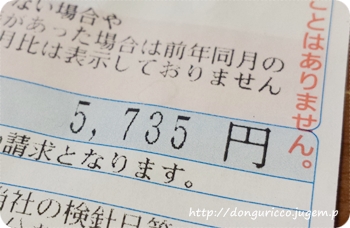 ない場合や
があった場合は前年同月の
月比は表示しておりません
5,735 円
請求となります。
当社の検針日等
ことはありません。
http://donguricco.jugem.p